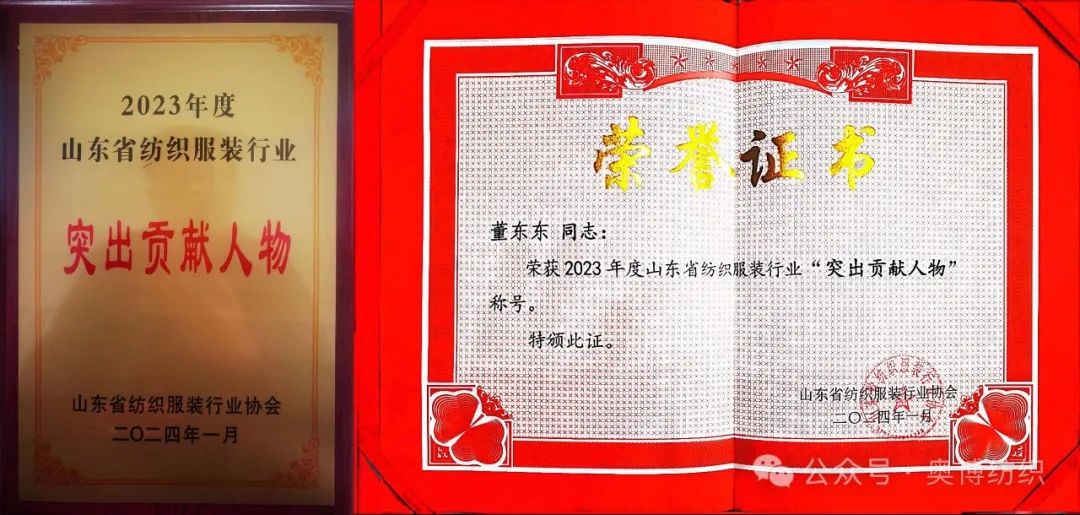 2023年度
山东省纺织服装行业
突出贡献人物
山东省纺织服装行业协会
二〇二四年一月
荣誉证书
董东东 同志：
荣获2023年度山东省纺织服装行业“突出贡献人物”
称号。
特颁此证。
山东省纺织服装行业协会
二〇二四年一月
公众号·奥博纺织